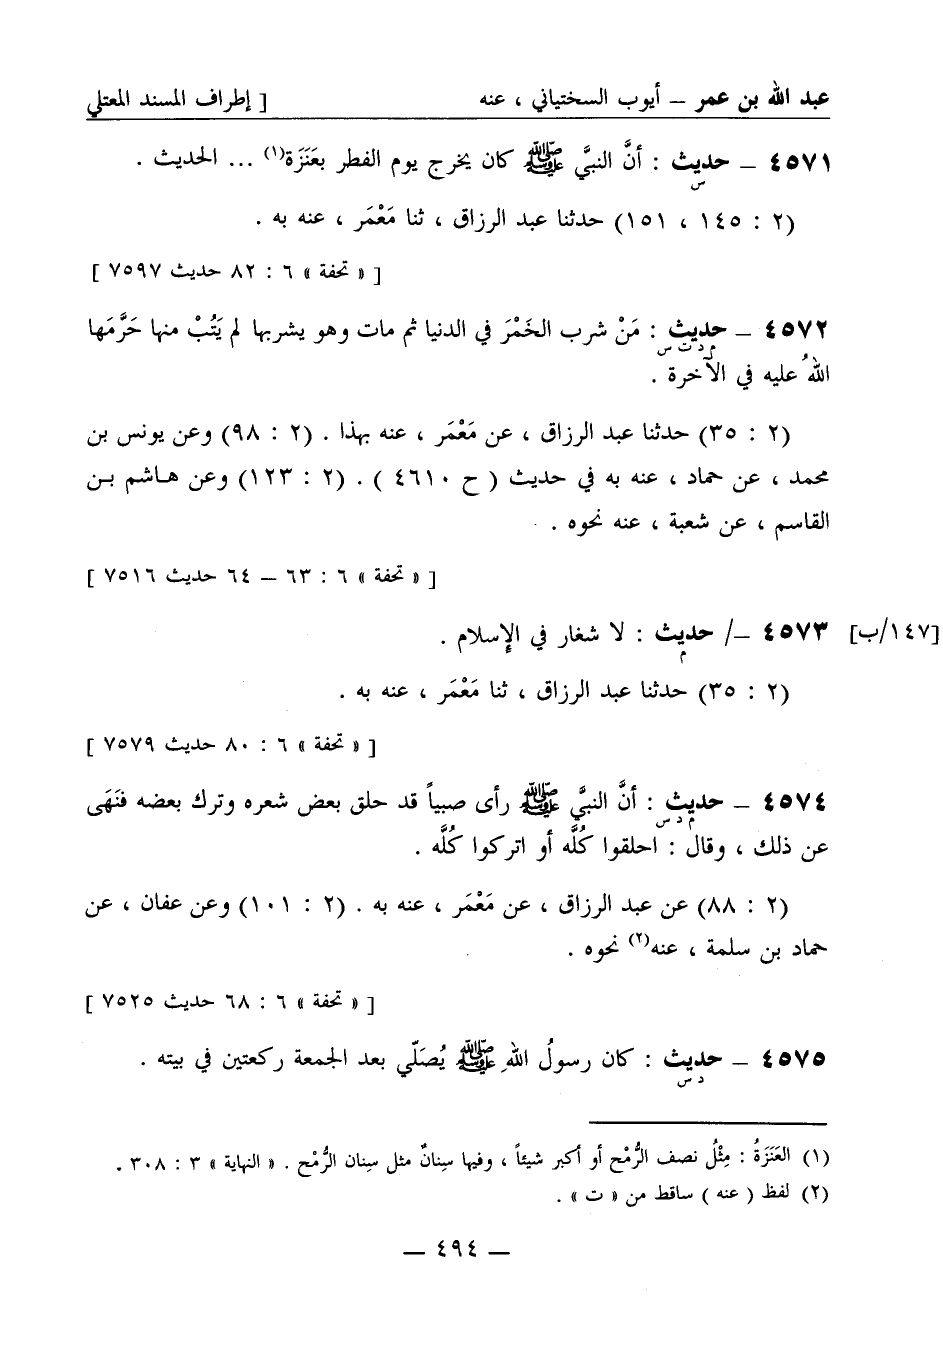 عبد الله بن عمر – أيوب السختياني ، عنه [ إطراف المسند المعتلي
٤٥٧١ – حديث : أنَّ النبيَّ ﷺ كان يخرج يوم الفطر بعَنَزَة(١) ... الحديث .
س
(٢ : ١٤٥ ، ١٥١) حدثنا عبد الرزاق ، ثنا مَعْمَر ، عنه به .
[ « تحفة » ٦ : ٨٢ حديث ٧٥٩٧ ]
٤٥٧٢ – حديث : مَنْ شرب الخَمْرَ في الدنيا ثم مات وهو يشربها لم يَتُبْ منها حَرَّمَها
م د ت س
اللهُ عليه في الآخرة .
(٢ : ٣٥) حدثنا عبد الرزاق ، عن مَعْمَر ، عنه بهذا . (٢ : ٩٨) وعن يونس بن
محمد ، عن حماد ، عنه به في حديث ( ح ٤٦١٠ ) . (٢ : ١٢٣) وعن هاشم بن
القاسم ، عن شعبة ، عنه نحوه .
[ « تحفة » ٦ : ٦٣ – ٦٤ حديث ٧٥١٦ ]
[١٤٧/ب] ٤٥٧٣ –/ حديث : لا شغار في الإسلام .
م
(٢ : ٣٥) حدثنا عبد الرزاق ، ثنا مَعْمَر ، عنه به .
[ « تحفة » ٦ : ٨٠ حديث ٧٥٧٩ ]
٤٥٧٤ – حديث : أنَّ النبيَّ ﷺ رأى صبياً قد حلق بعض شعره وترك بعضه فنَهَى
م د س
عن ذلك ، وقال : احلقوا كُلَّه أو اتركوا كُلَّه .
(٢ : ٨٨) عن عبد الرزاق ، عن مَعْمَر ، عنه به . (٢ : ١٠١) وعن عفان ، عن
حماد بن سلمة ، عنه(٢) نحوه .
[ « تحفة » ٦ : ٦٨ حديث ٧٥٢٥ ]
٤٥٧٥ – حديث : كان رسولُ اللهِ ﷺ يُصَلّي بعد الجمعة ركعتين في بيته .
د س
(١) العَنَزَةُ : مِثْلُ نصف الرُّمْح أو أكبر شيئاً ، وفيها سِنانٌ مثل سِنان الرُّمْح . « النهاية » ٣ : ٣٠٨ .
(٢) لفظ ( عنه ) ساقط من « ت » .
– ٤٩٤ –